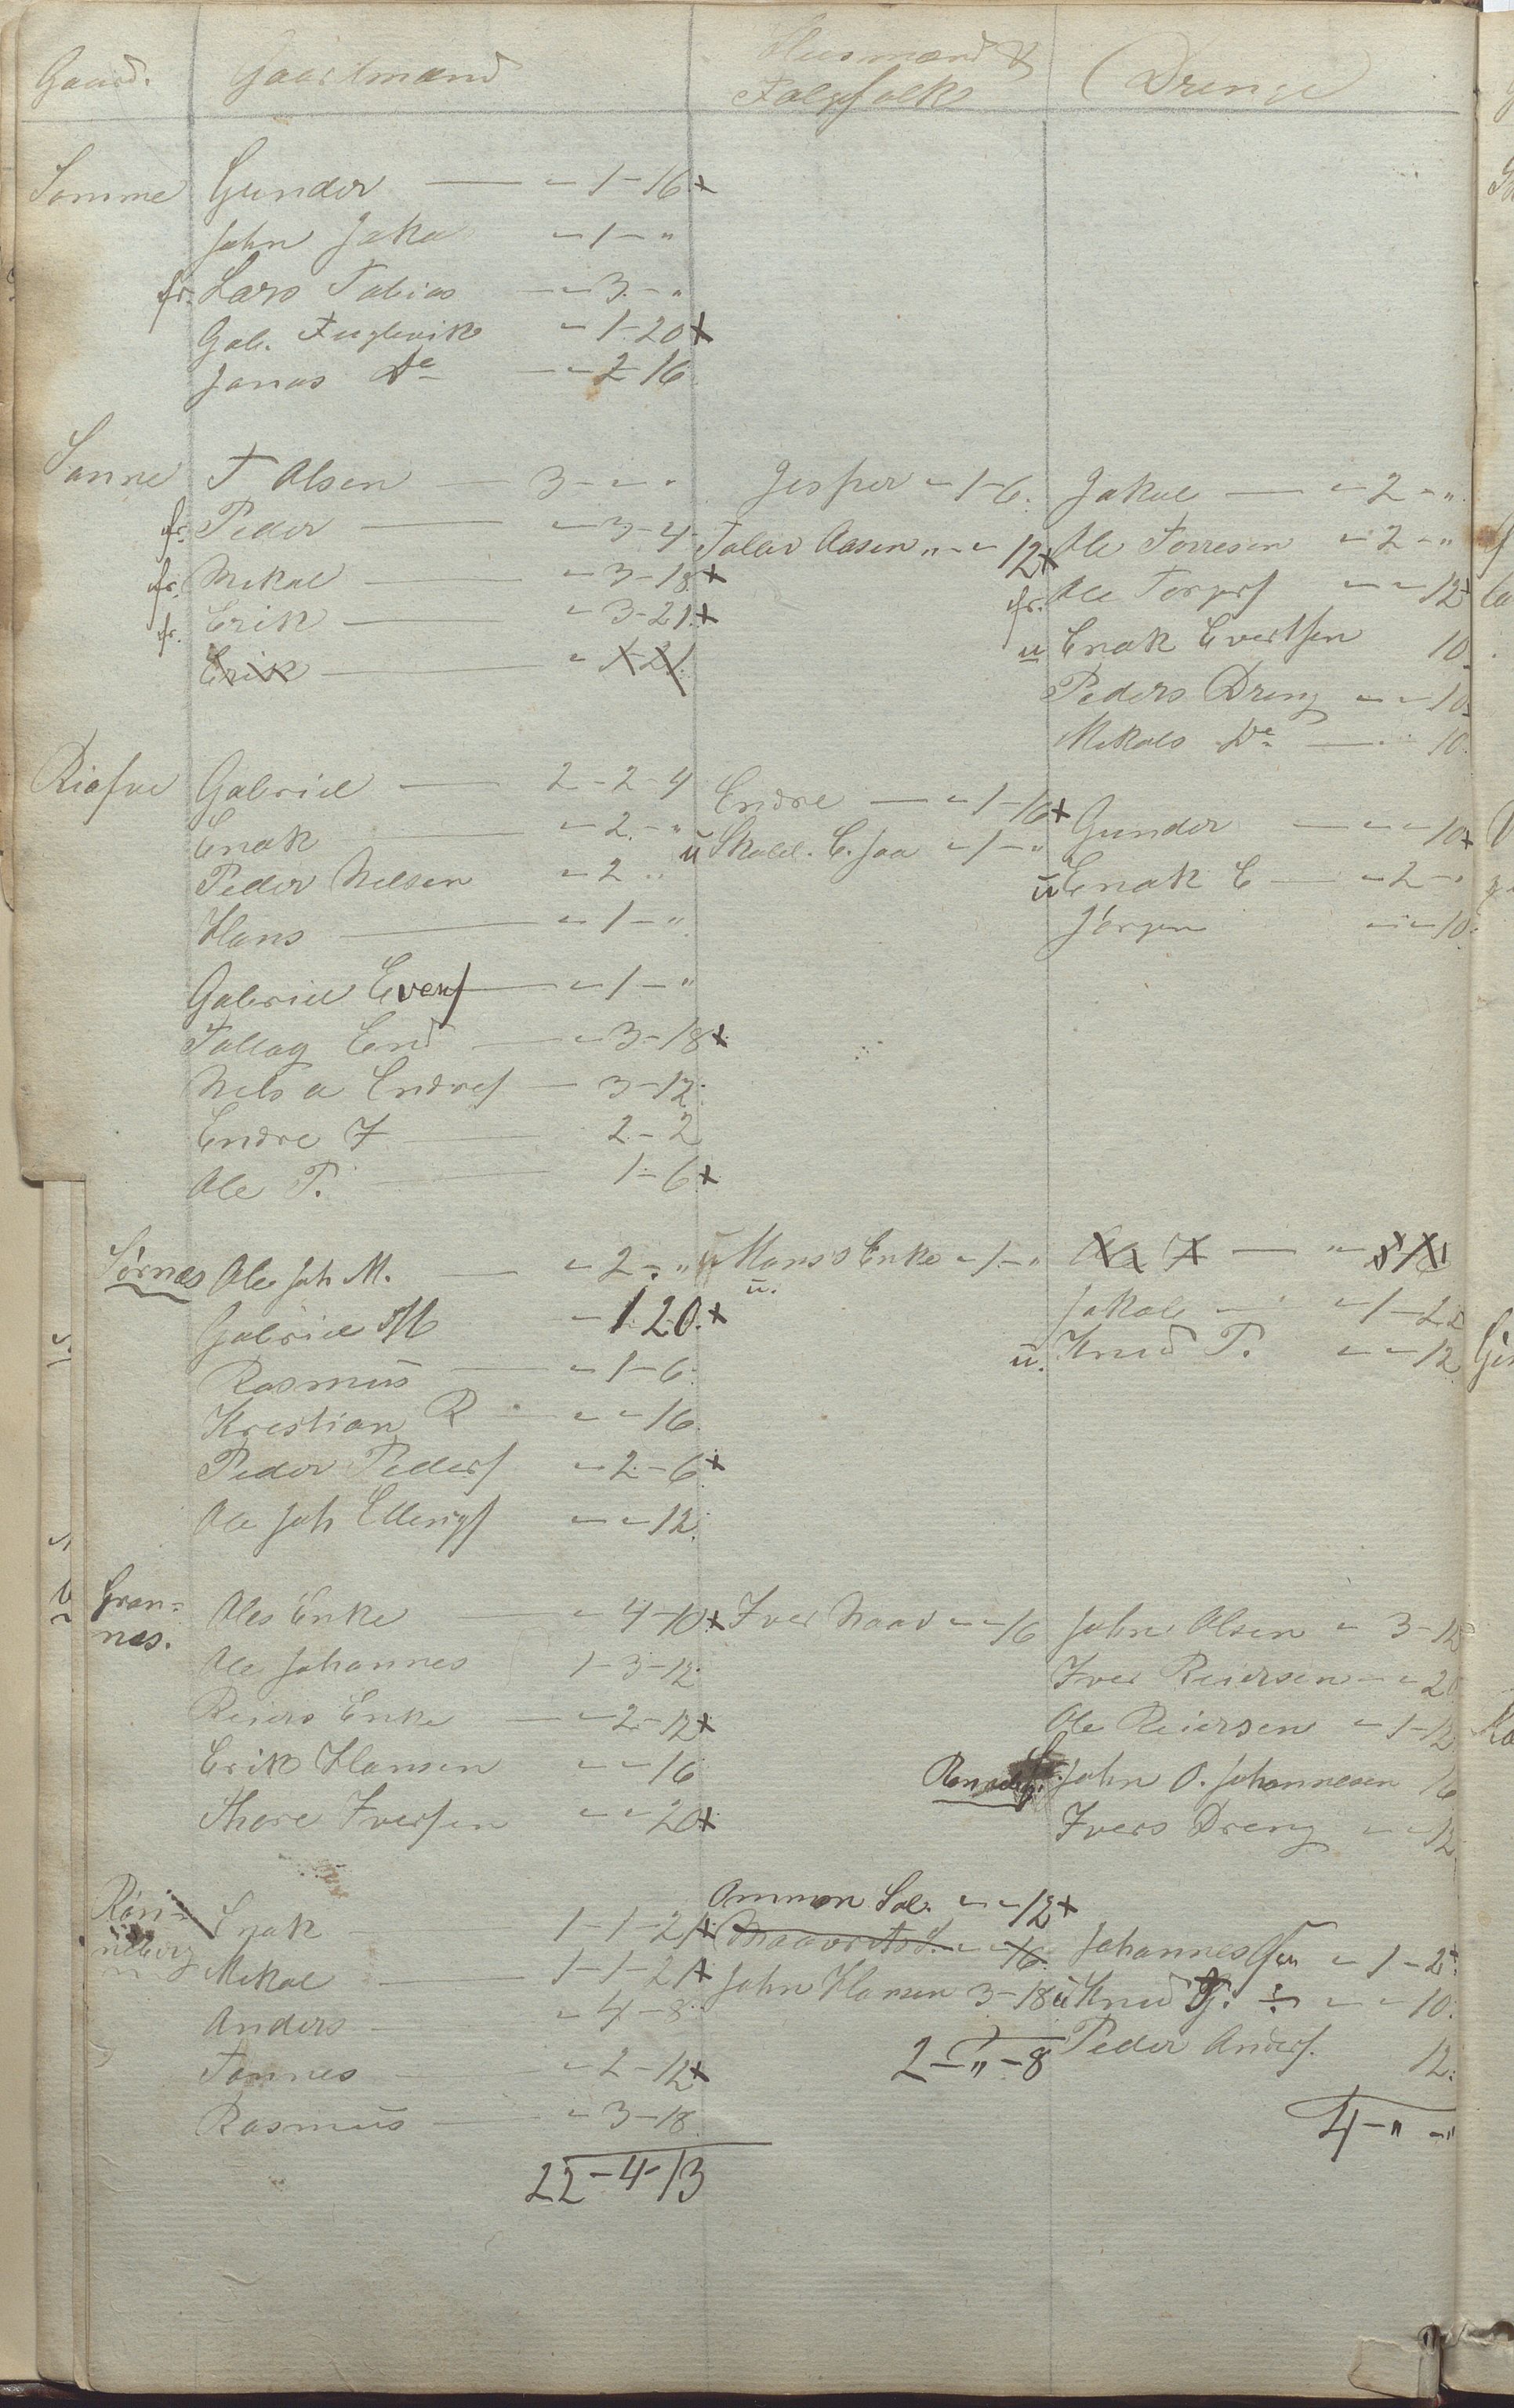 Gaard. Gaardmænd Husmænd & Drenge
Folgefolk
Somme Gunder — " - 1 - 16 x
John Jako " - 1 - "
fr. Lars Tobias " - 3 - "
Gab. Fuglevik " - 1 - 20 x
Jonas De " - 2 - 16
Sanne T Olsen — 3 - " - " Jesper " - 1 - 6. Jakob — " - 2 - "
fr. Peder — " - 3 - 4 Tolav Aasen " - " 12 x Ole Torresen " - 2 - "
fr. Mikal — " - 3 - 18 x fr. Ole Torgers " - " - 12 x
fr. Erik — " - 3 - 21 x u Enok Evertsen 10
Erik — " 1 - 21 Peders Dreng " - " - 10
Mikals De — 10.
Gabriel — 2 - 2 - 4 Endre — " - 1 - 16 x Gunder " - " - 10 x
Enok — " - 2 - " u E. Jaa " - 1 - " u Enok E — " - 2 - "
Peder Nelsen " - 2 " Jørgen " - " - 10.
Hans — " - 1 - "
Gabriel Evens — " - 1 - "
Tallag End — " - 3 - 18 x
Nels a Endres — 3 - 12.
Endre T — 2 - 2
Ole T. — 1 - 6 x
Sørnes Ole Joh M. — " - 2 - " u Hans's Enke " - 1 - " Ole T — "
Gabriel M - 1. 20. x u. Jakob — " - 1 - 22
Rasmus — " - 1 - 6. u. Knud T. " - " - 12
Krestian R — " - " 16.
Peder Peders " - 2 - 6 x
Ole Joh Ellengs " - " - 12.
Gran= Oles Enke — " - 4 - 10 x Iver Naad " - " - 16 John Olsen " - 3 - 12
nes. Ole Johannes 1 - 3 - 12. Iver Reiersen " - " 20
Reiers Enke — " - 2 - 12 x Ole Reiersen " - 1 - 12
Erik Hansen " - " - 16 John O. Johannesen 16
Thore Iversen " - " - 20 x Ivers Dreng " - " 12
Ammon Sal. " - " - 12 x
Enok — 1 - 1 - 21 x " - 16 Johannes " - 1 - 2
Mikal — 1 - 1 - 21 x John Hansen 3 - 18 u Knud " - " - 10.
Anders — " - 4 - 8. Peder Anders. 12.
Tonnes — " - 2 - 12 x 2 - " - 8
Rasmus — " - 3 - 18. 4 - " - "
22 - 4 - 13